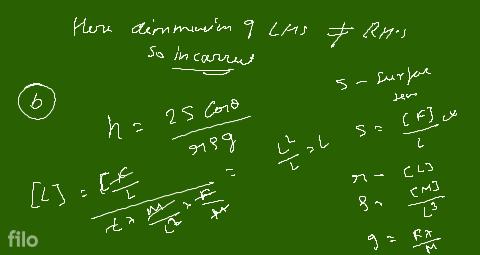 Here dimension of LHS ≠ RHS
So Incorrect
(b)
h = 2S Cosθ / rρg
S - Surface
S = [F] / L
[L] = [F / L] / L × M / L³ × F / M = L² / L = L
r - [L]
ρ - [M] / L³
g = F / M
filo